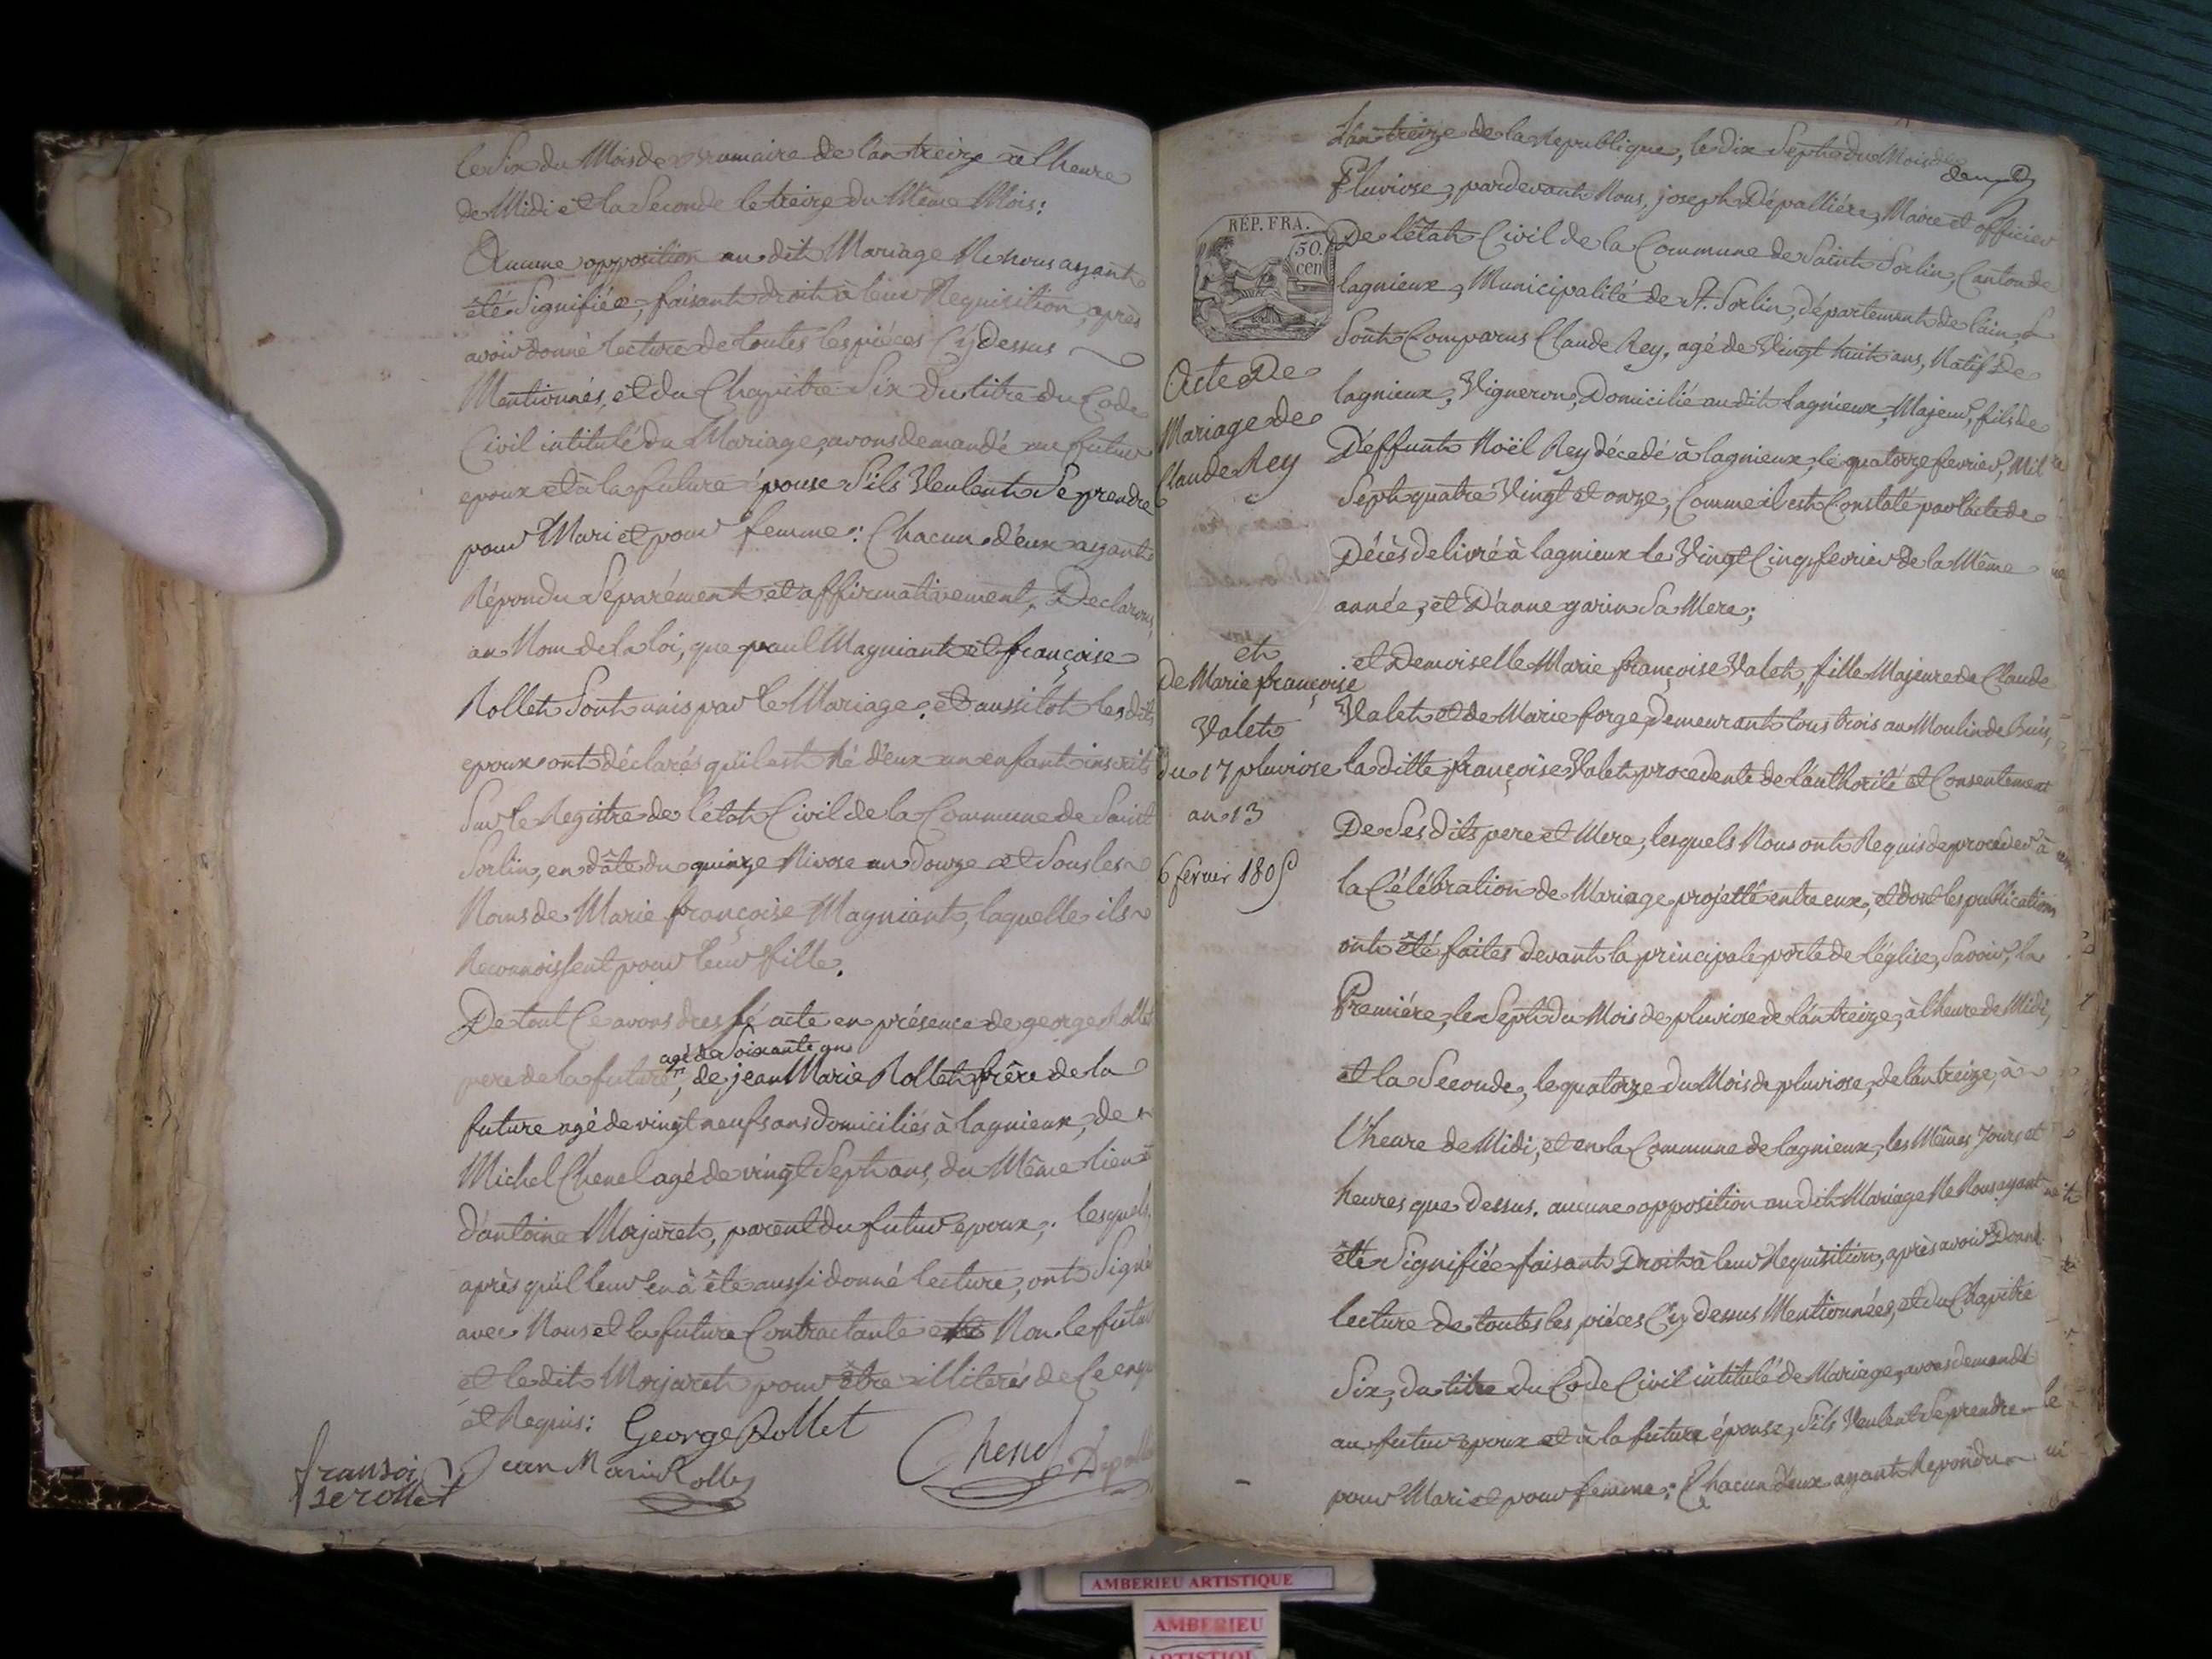 le Six du Mois de Brumaire de l'an treize à l'heure
de Midi et la Seconde le treize du Même Mois:
Aucune opposition au dit Mariage Ne nous ayant
été Signifiée, faisant droit à leur Requisition, après
avoir donné lecture de toutes les piéces Cy Dessus
Mentionnés, et du Chapitre Six du titre du Code
Civil intitulé du Mariage, avons demandé au futur
epoux et à la future épouse S'ils Veulent Se prendre
pour Mari et pour femme: Chacun d'eux ayant
Répondu Séparément et affirmativement, Declarons,
au Nom de la loi, que paul Magniant et françoise
Rollet Sont unis par le Mariage: et aussitôt les dits
epoux ont déclarés qu'il est Né d'eux un enfant inscrit
Sur le Registre de l'état Civil de la Commune de Saint
Sorlin, en dâte du quinze Nivose an douze et Sous les
Noms de Marie françoise Magniant, laquelle ils
Reconnoissent pour leur fille.
De tout Ce avons dressé acte en présence de george Rollet
agé de Soixante un
pere de la future, de jean Marie Rollet frère de la
future agé de vingt neuf ans domiciliés à lagnieux, de
Michel Chenel agé de vingt Sept ans, du Même lieu et
d'antoine Morjaret, parent du futur epoux; lesquels,
après qu'il leur en à été aussi donné lecture, ont Signé
avec Nous et la future Contractante Non le futur
et le dit Morjaret pour être illiterés de Ce enquis
et Requis: George Rollet
fransoi
se rollet
Jean Marie Rollet
Chenel
Depallier
deux
L'an treize de la Republique, le dix Sept du Mois de
Pluviose, pardevant Nous, joseph Dépalliére, Maire et officier
De l'état Civil de la Commune de Saint Sorlin, Canton de
lagnieux, Municipalité de St. Sorlin, département de l'ain,
Sont Comparus Claude Rey, agé de Vingt huit ans, Natif De
lagnieux, Vigneron, Domicilié au dit lagnieux, Majeur, fils de
Déffunt Noël Rey décedé à lagnieux, le quatorze fevrier, Mil
Sept quatre Vingt et onze, Comme il est Constaté par l'acte de
Décès delivré à lagnieux le Vingt Cinq fevrier de la Même
année, et D'anne garin Sa Mere;
et Demoiselle Marie françoise Valet, fille Majeure de Claude
Valet et de Marie forge, Demeurant tous trois au Moulin de buis,
la ditte françoise Valet procedente de l'authorité et Consentement
De Ses dits pere et Mere, lesquels Nous ont Requis de proceder à
la Célébration de Mariage projetté entre eux, et dont les publications
ont été faites devant la principale porte de l'église, Savoir, la
Première, le Sept du Mois de pluviose de l'an treize, à l'heure de Midi,
et la Seconde, le quatorze du Mois de pluviose, de l'an treize, à
l'heure de Midi, et en la Commune de lagnieux, les Mêmes Jours et
heures que dessus. aucune opposition au dit Mariage Ne Nous ayant
été Signifiée faisant Droit à leur Requisition, après avoir Donné
lecture de toutes les piéces Cy dessus Mentionnées, et du Chapitre
Six, du titre du Code Civil intitulé de Mariage, avons demandé
au futur epoux et à la future épouse, S'ils Veulent Se prendre
pour Mari et pour femme: Chacun d'eux ayant Repondu
RÉP. FRA.
50.
cen
Acte De
Mariage de
Claude Rey
et
De Marie françoise
Valet
du 17 pluviose
an 13
6 fevrier 1805
AMBERIEU ARTISTIQUE
AMBERIEU
ARTISTIQUE